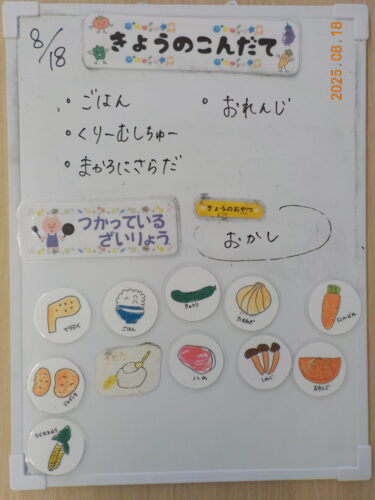 8/18
きょうのこんだて
2025.08.18
・ごはん
・おれんじ
・くりーむしちゅー
・まかろにさらだ
つかっている
ざいりょう
きょうのおやつ
おかし
とりにく
ごはん
きゅうり
たまねぎ
にんじん
じゃがいも
ハム
しめじ
おれんじ